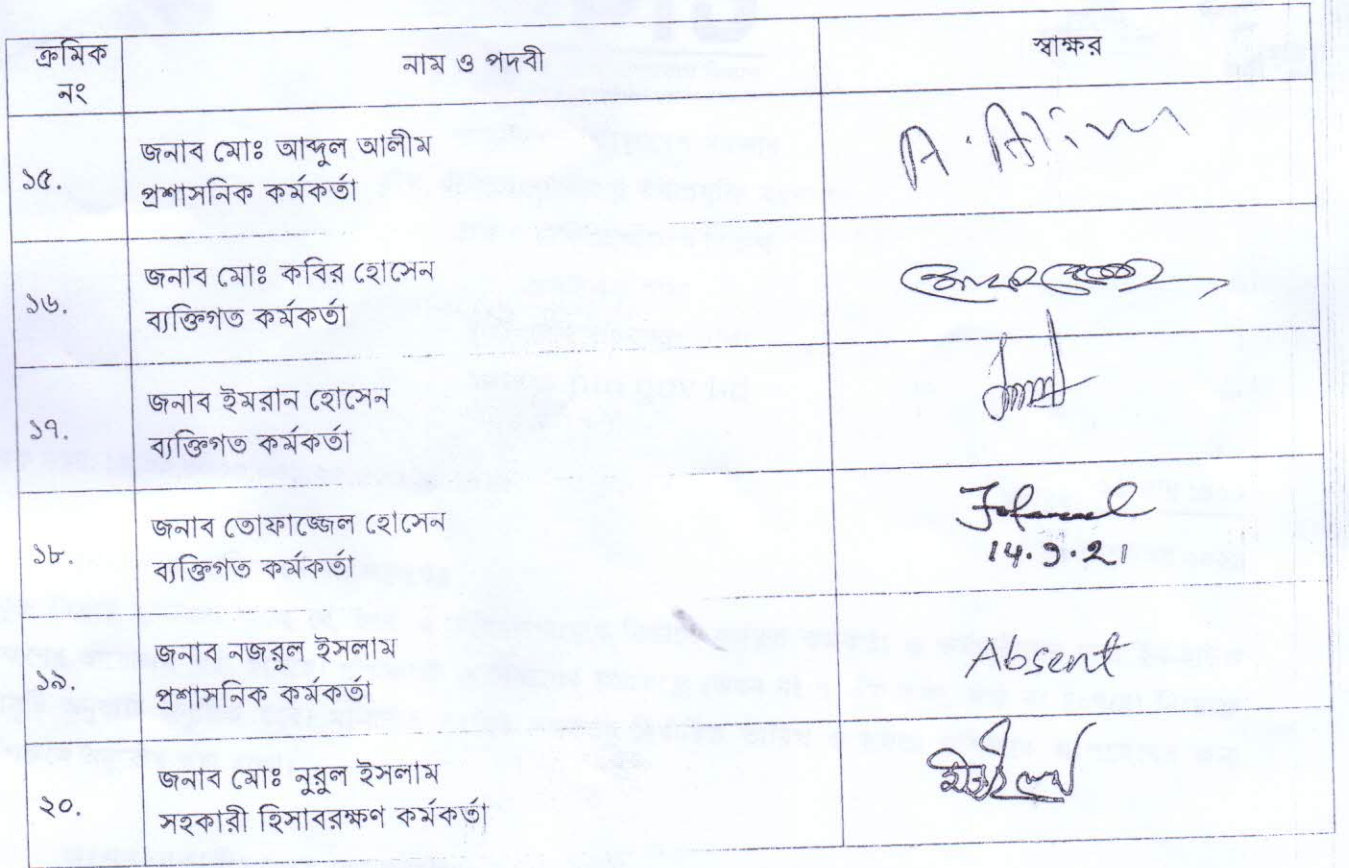 ক্রমিক
নং
নাম ও পদবী
স্বাক্ষর
১৫.
জনাব মোঃ আব্দুল আলীম
প্রশাসনিক কর্মকর্তা
A. Alim
১৬.
জনাব মোঃ কবির হোসেন
ব্যক্তিগত কর্মকর্তা
১৭.
জনাব ইমরান হোসেন
ব্যক্তিগত কর্মকর্তা
১৮.
জনাব তোফাজ্জেল হোসেন
ব্যক্তিগত কর্মকর্তা
14.9.21
১৯.
জনাব নজরুল ইসলাম
প্রশাসনিক কর্মকর্তা
Absent
২০.
জনাব মোঃ নুরুল ইসলাম
সহকারী হিসাবরক্ষণ কর্মকর্তা